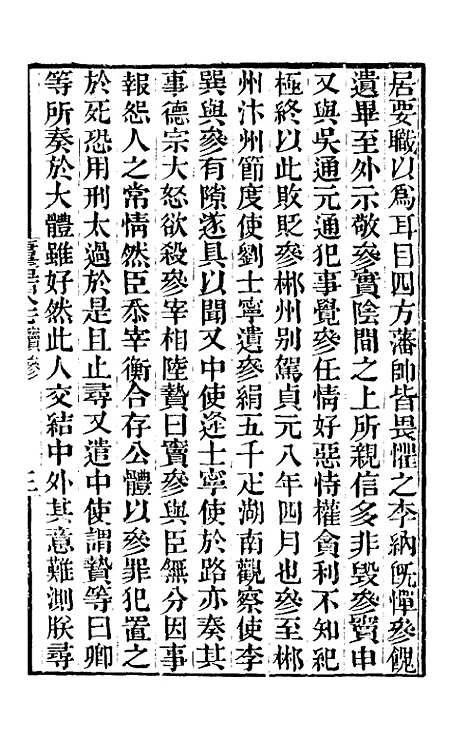 居要職以爲耳目四方藩帥皆畏懼之李納旣憚參餽
遺畢至外示敬參實陰間之上所親信多非毀參竇申
又與吳通元通犯事覺參任情好惡恃權貪利不知紀
極終以此敗貶參郴州别駕貞元八年四月也參至郴
州汴州節度使劉士寧遺參絹五千疋湖南觀察使李
巽與參有隙遂具以聞又中使逢士寧使於路亦奏其
事德宗大怒欲殺參宰相陸贄曰竇參與臣無分因事
報怨人之常情然臣忝宰衡合存公體以參罪犯置之
於死恐用刑太過於是且止尋又遣中使謂贄等曰卿
等所奏於大體雖好然此人交結中外其意難測朕尋
竇參
三